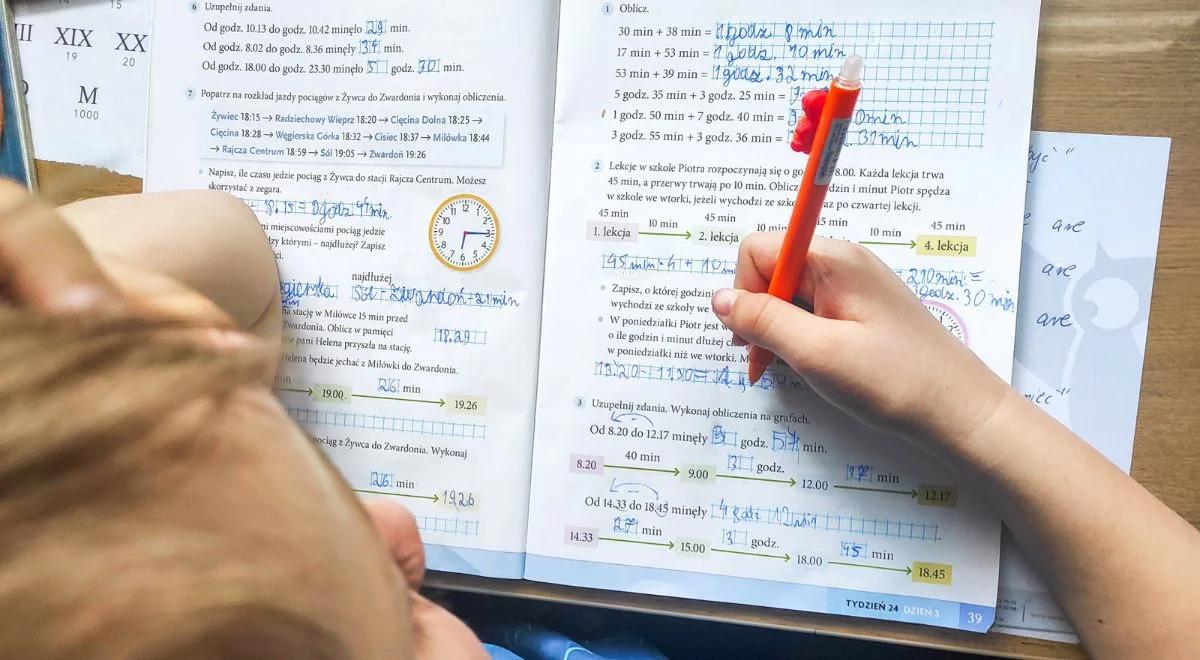 15
III XIX XX
19 20
M
1000
6 Uzupełnij zdania.
Od godz. 10.13 do godz. 10.42 minęło 29 min.
Od godz. 8.02 do godz. 8.36 minęły 34 min.
Od godz. 18.00 do godz. 23.30 minęło 5 godz. 30 min.
7 Popatrz na rozkład jazdy pociągów z Żywca do Zwardonia i wykonaj obliczenia.
Żywiec 18:15 → Radziechowy Wieprz 18:20 → Cięcina Dolna 18:25 →
Cięcina 18:28 → Węgierska Górka 18:32 → Cisiec 18:37 → Milówka 18:44
→ Rajcza Centrum 18:59 → Sól 19:05 → Zwardoń 19:26
Napisz, ile czasu jedzie pociąg z Żywca do stacji Rajcza Centrum. Możesz
skorzystać z zegara.
18.15 = 0godz 44min
miejscowościami pociąg jedzie
którymi – najdłużej? Zapisz
11 12 1 2 3 4 5 6 7 8 9 10
najdłużej
Sól - Zwardoń - 21 min
na stację w Milówce 15 min przed
Zwardonia. Oblicz w pamięci
pani Helena przyszła na stację.
18.29
Helena będzie jechać z Milówki do Zwardonia.
26 min
19.00 19.26
pociąg z Żywca do Zwardonia. Wykonaj
26 min
19.26
1 Oblicz.
30 min + 38 min = 1 godz 8 min
17 min + 53 min = 1 godz. 10 min
53 min + 39 min = 1 godz. 32 min
5 godz. 35 min + 3 godz. 25 min =
1 godz. 50 min + 7 godz. 40 min = 0min
3 godz. 55 min + 3 godz. 36 min = 31min
2 Lekcje w szkole Piotra rozpoczynają się o 8.00. Każda lekcja trwa
45 min, a przerwy trwają po 10 min. Oblicz i minut Piotr spędza
w szkole we wtorki, jeżeli wychodzi ze po czwartej lekcji.
45 min 10 min 45 min 10 min 45 min 10 min 45 min
1. lekcja 2. lekcja 4. lekcja
45 min · 4 + 10 = 210 min. =
godz. 30 min
Zapisz, o której
wychodzi ze szkoły we
W poniedziałki Piotr jest
o ile godzin i minut dłużej
w poniedziałki niż we wtorki.
13.20 - 11.30 =
3 Uzupełnij zdania. Wykonaj obliczenia na grafach.
Od 8.20 do 12.17 minęły 3 godz. 57 min.
40 min 3 godz. 17 min
8.20 9.00 12.00 12.17
Od 14.33 do 18.45 minęły 4 godz 12 min.
27 min 3 godz. 45 min
14.33 15.00 18.00 18.45
TYDZIEŃ 24 DZIEŃ 3 39
are
are
are